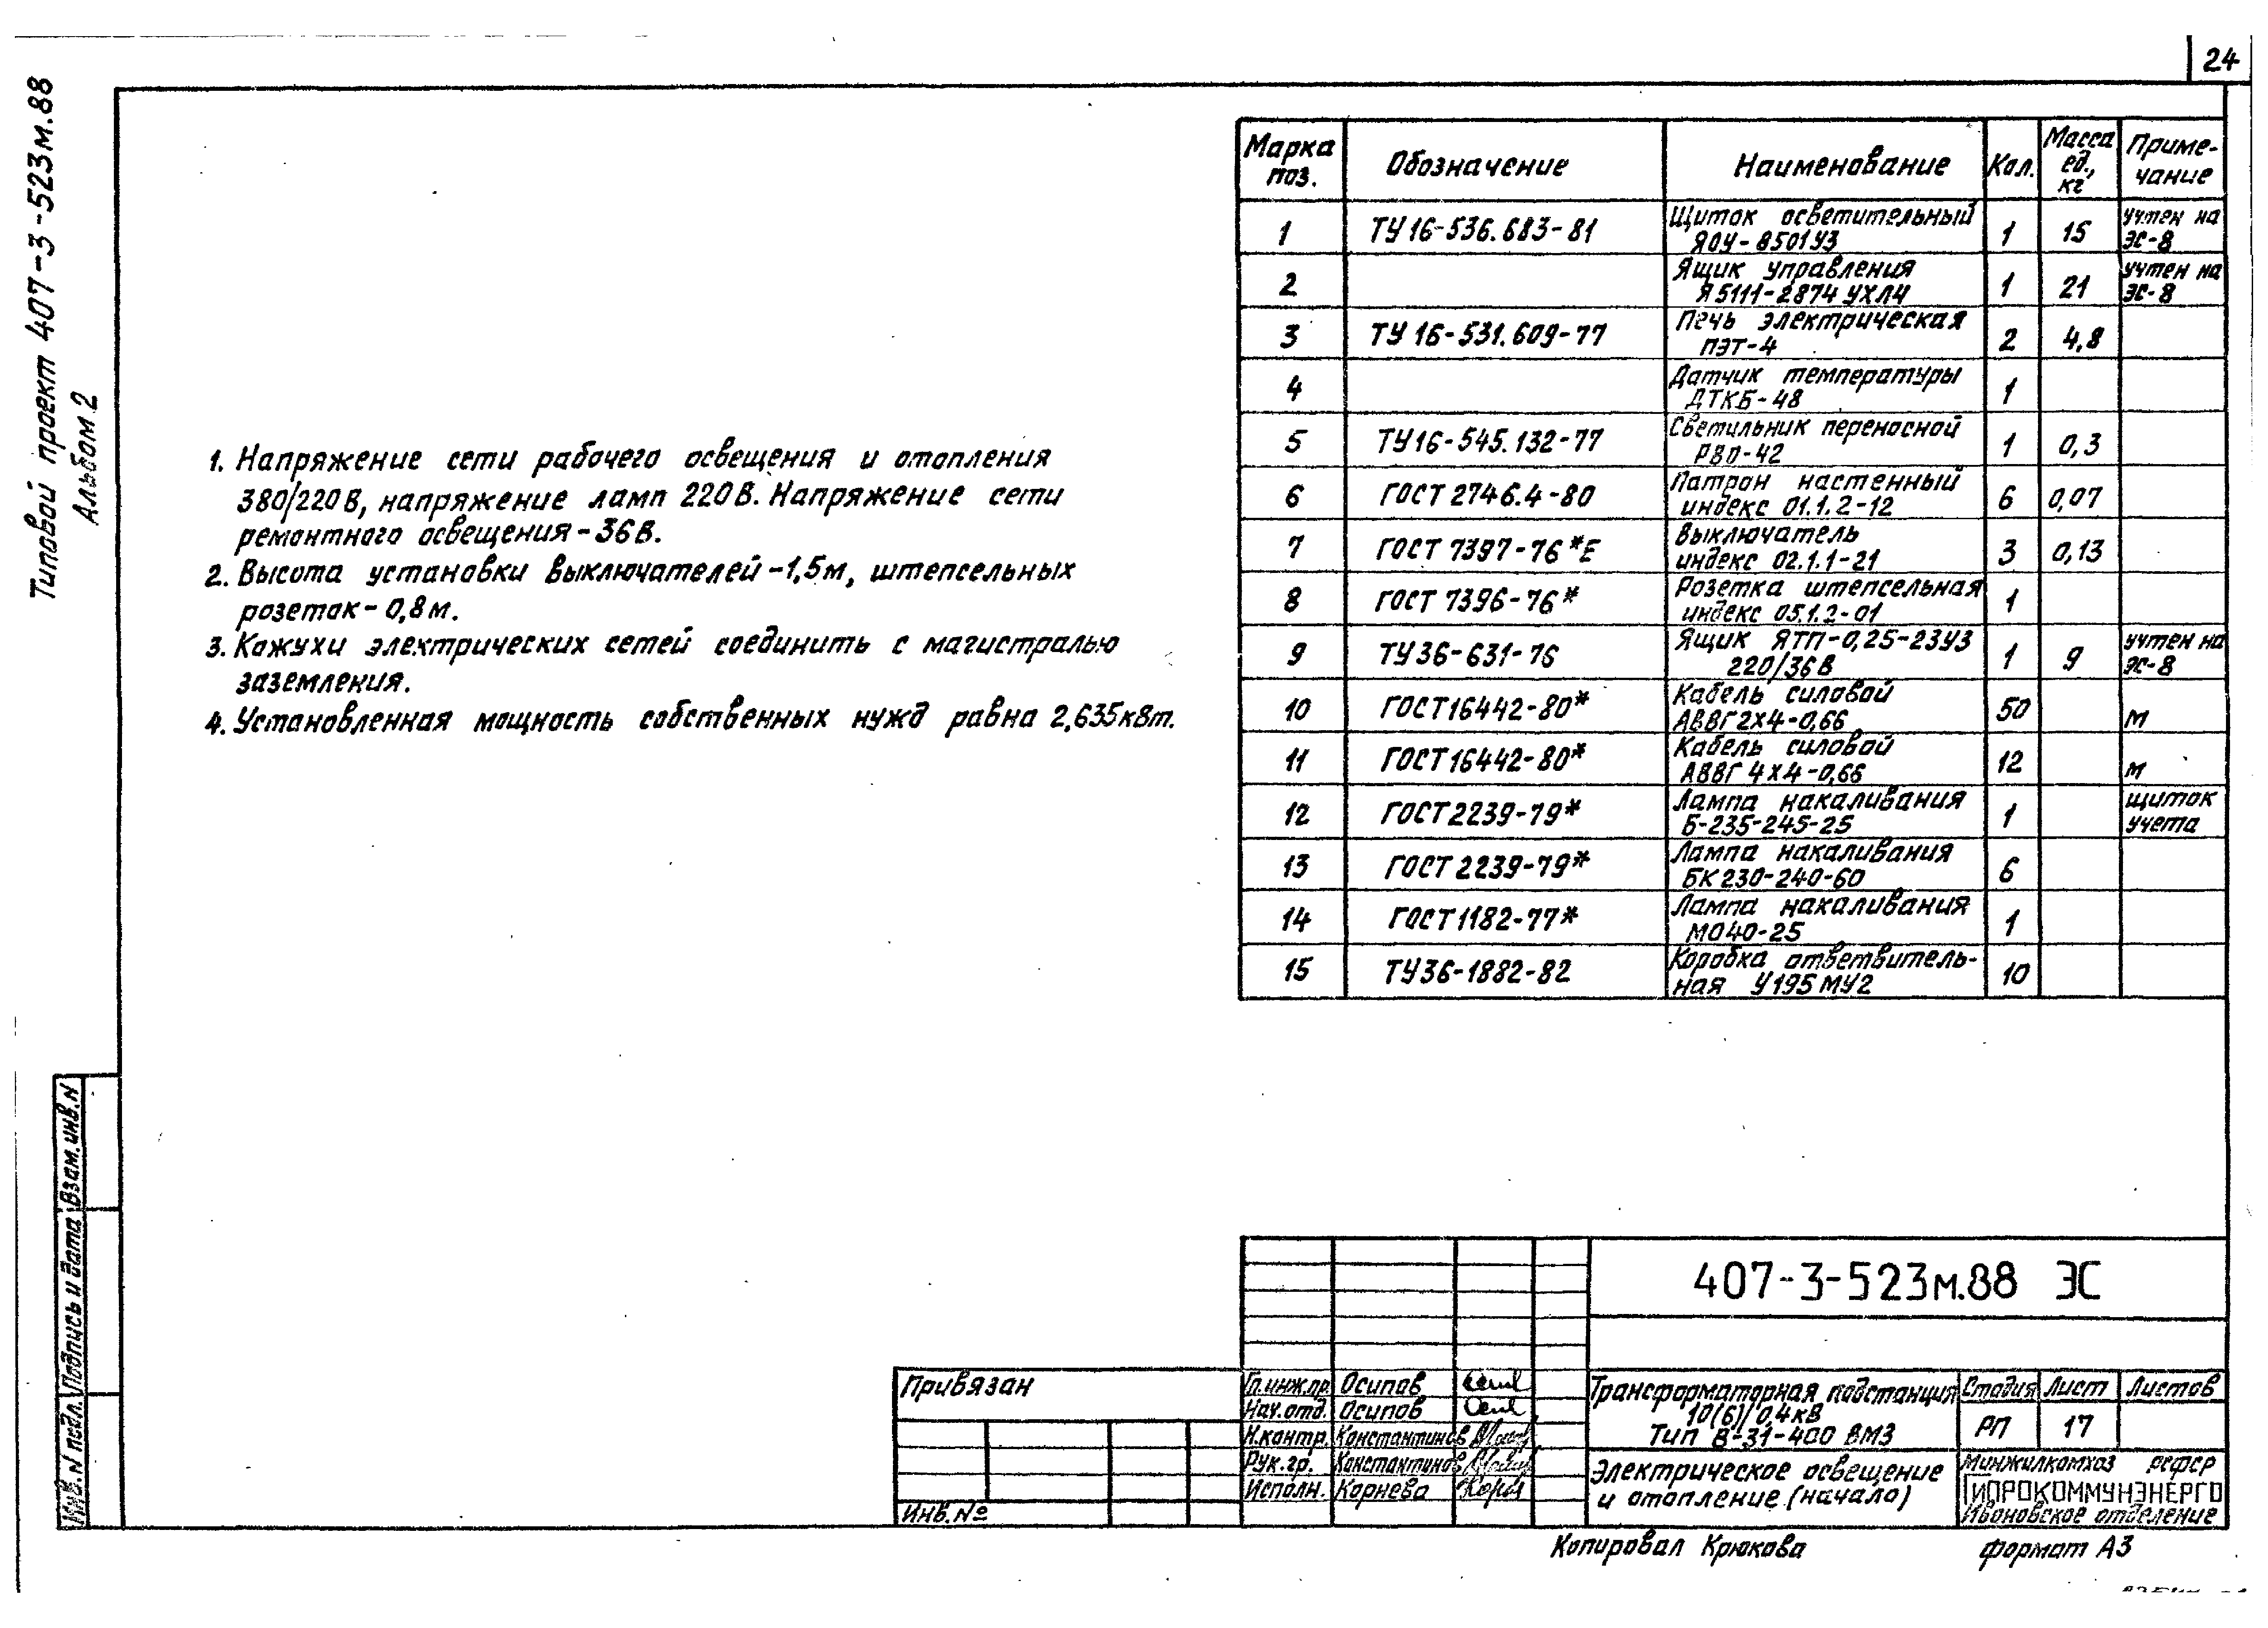 24
Типовой проект 407-3-523м.88
Альбом 2
1. Напряжение сети рабочего освещения и отопления
380/220В, напряжение ламп 220В. Напряжение сети
ремонтного освещения-36В.
2. Высота установки выключателей-1,5м, штепсельных
розеток-0,8м.
3. Кожухи электрических сетей соединить с магистралью
заземления.
4. Установленная мощность собственных нужд равна 2,635кВт.
Марка поз. Обозначение Наименование Кол. Масса ед., кг Приме-чание
1 ТУ 16-536.683-81 Щиток осветительный ЯОУ-8501У3 1 15 учтен на ЭС-8
2 Ящик управления Я5111-2874 УХЛ4 1 21 учтен на ЭС-8
3 ТУ 16-531.609-77 Печь электрическая ПЭТ-4 2 4,8
4 Датчик температуры ДТКБ-48 1
5 ТУ16-545.132-77 Светильник переносной РВО-42 1 0,3
6 ГОСТ 2746.4-80 Патрон настенный индекс 01.1.2-12 6 0,07
7 ГОСТ 7397-76*Е Выключатель индекс 02.1.1-21 3 0,13
8 ГОСТ 7396-76* Розетка штепсельная индекс 05.1.2-01 1
9 ТУ36-631-76 Ящик ЯТП-0,25-23У3 220/36В 1 9 учтен на ЭС-8
10 ГОСТ16442-80* Кабель силовой АВВГ2х4-0,66 50 м
11 ГОСТ16442-80* Кабель силовой АВВГ 4х4-0,66 12 м
12 ГОСТ2239-79* Лампа накаливания Б-235-245-25 1 щиток учета
13 ГОСТ 2239-79* Лампа накаливания БК230-240-60 6
14 ГОСТ1182-77* Лампа накаливания МО40-25 1
15 ТУ36-1882-82 Коробка ответвитель-ная У195 МУ2 10
Инв. N подл. Подпись и дата Взам. инв. N
407-3-523м.88 ЭС
Привязан
Инв. №
Гл.инж.пр. Осипов
Нач.отд. Осипов
Н.контр. Константинов
Рук.гр. Константинов
Исполн. Корнева
Трансформаторная подстанция
10(6)/0,4кВ
Тип В-31-400 ВМ3
Стадия Лист Листов
РП 17
Электрическое освещение
и отопление (начало)
Минжилкомхоз РСФСР
ГИПРОКОММУНЭНЕРГО
Ивановское отделение
Копировал Крюкова
формат А3